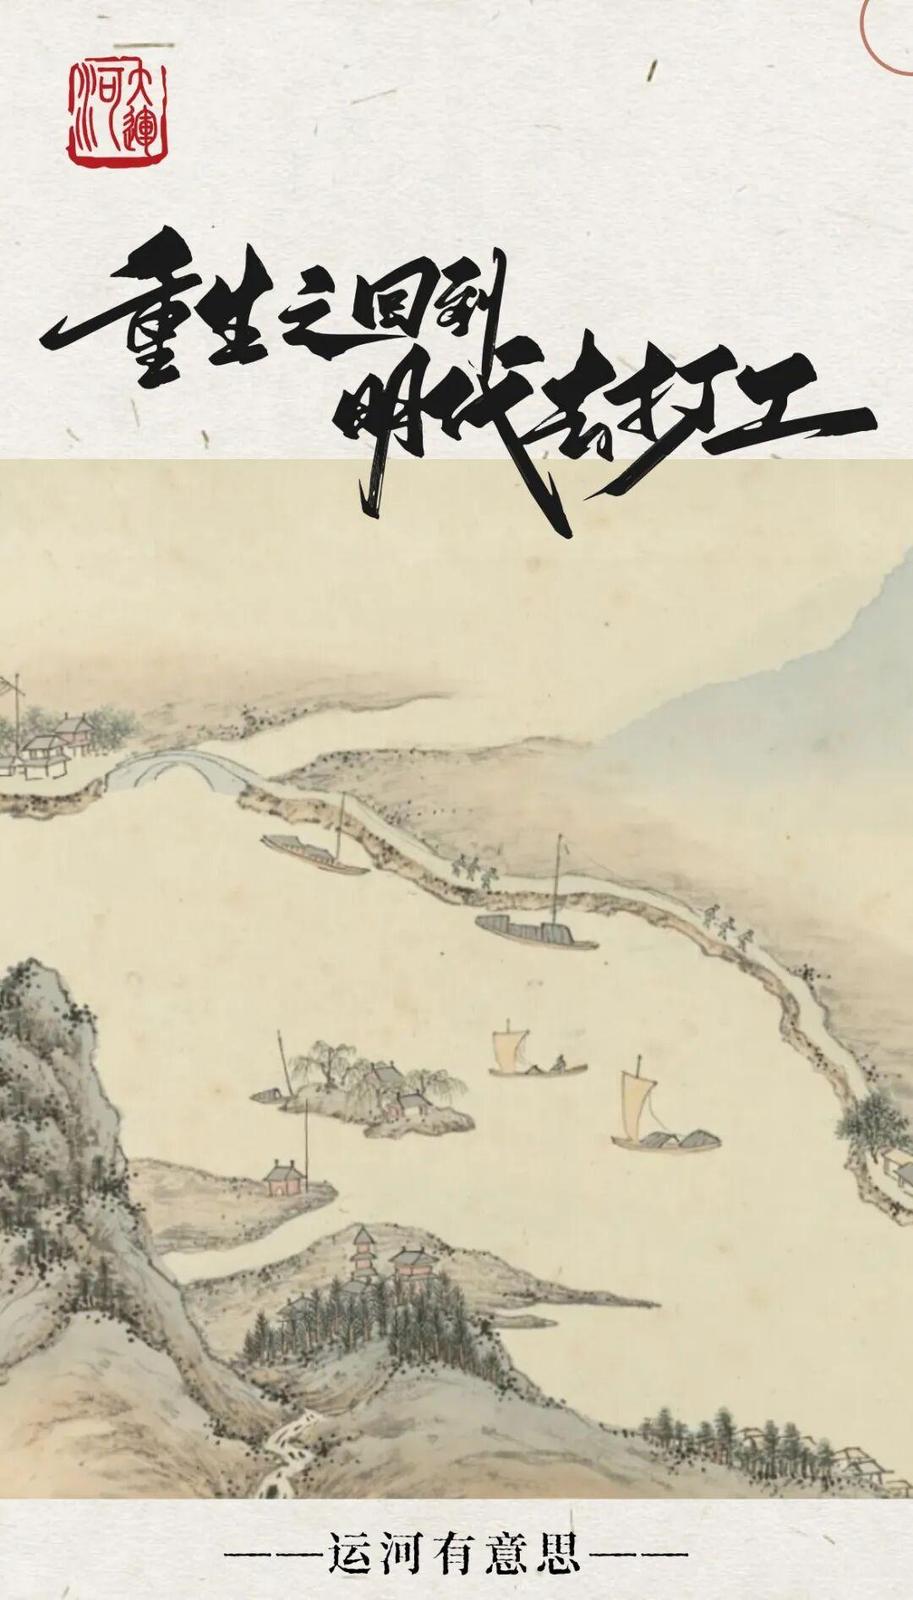 大運河
重生之回到
明代去打工
——运河有意思——